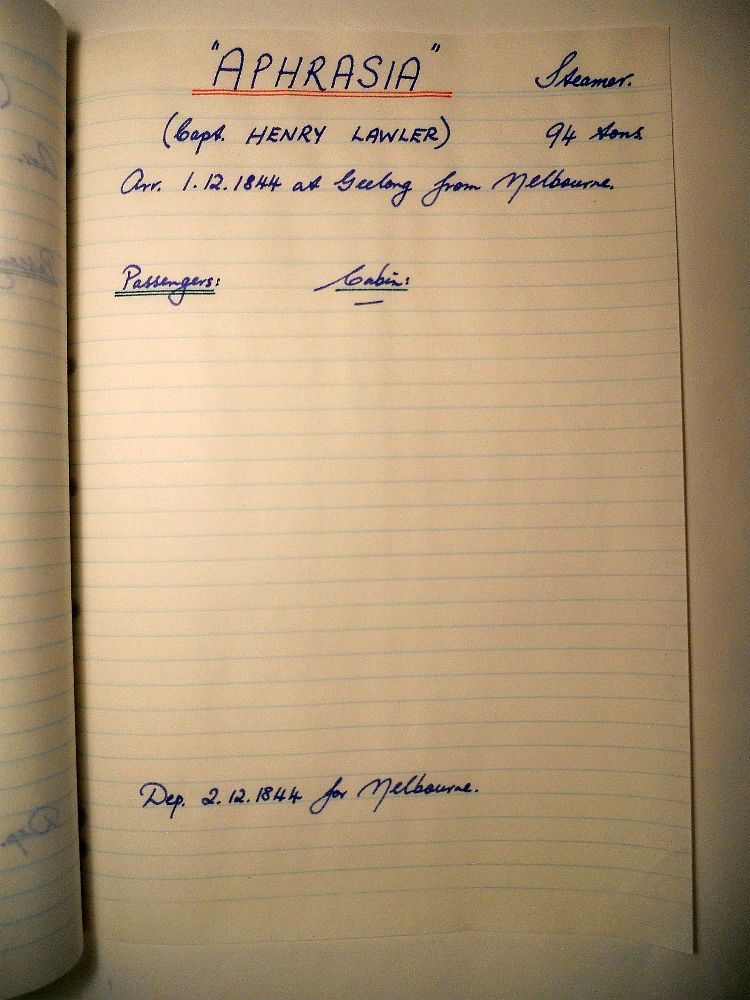 "APHRASIA" Steamer.
(Capt. HENRY LAWLER) 94 tons.
Arr. 1.12.1844 at Geelong from Melbourne.
Passengers: Cabin:
Dep. 2.12.1844 for Melbourne.